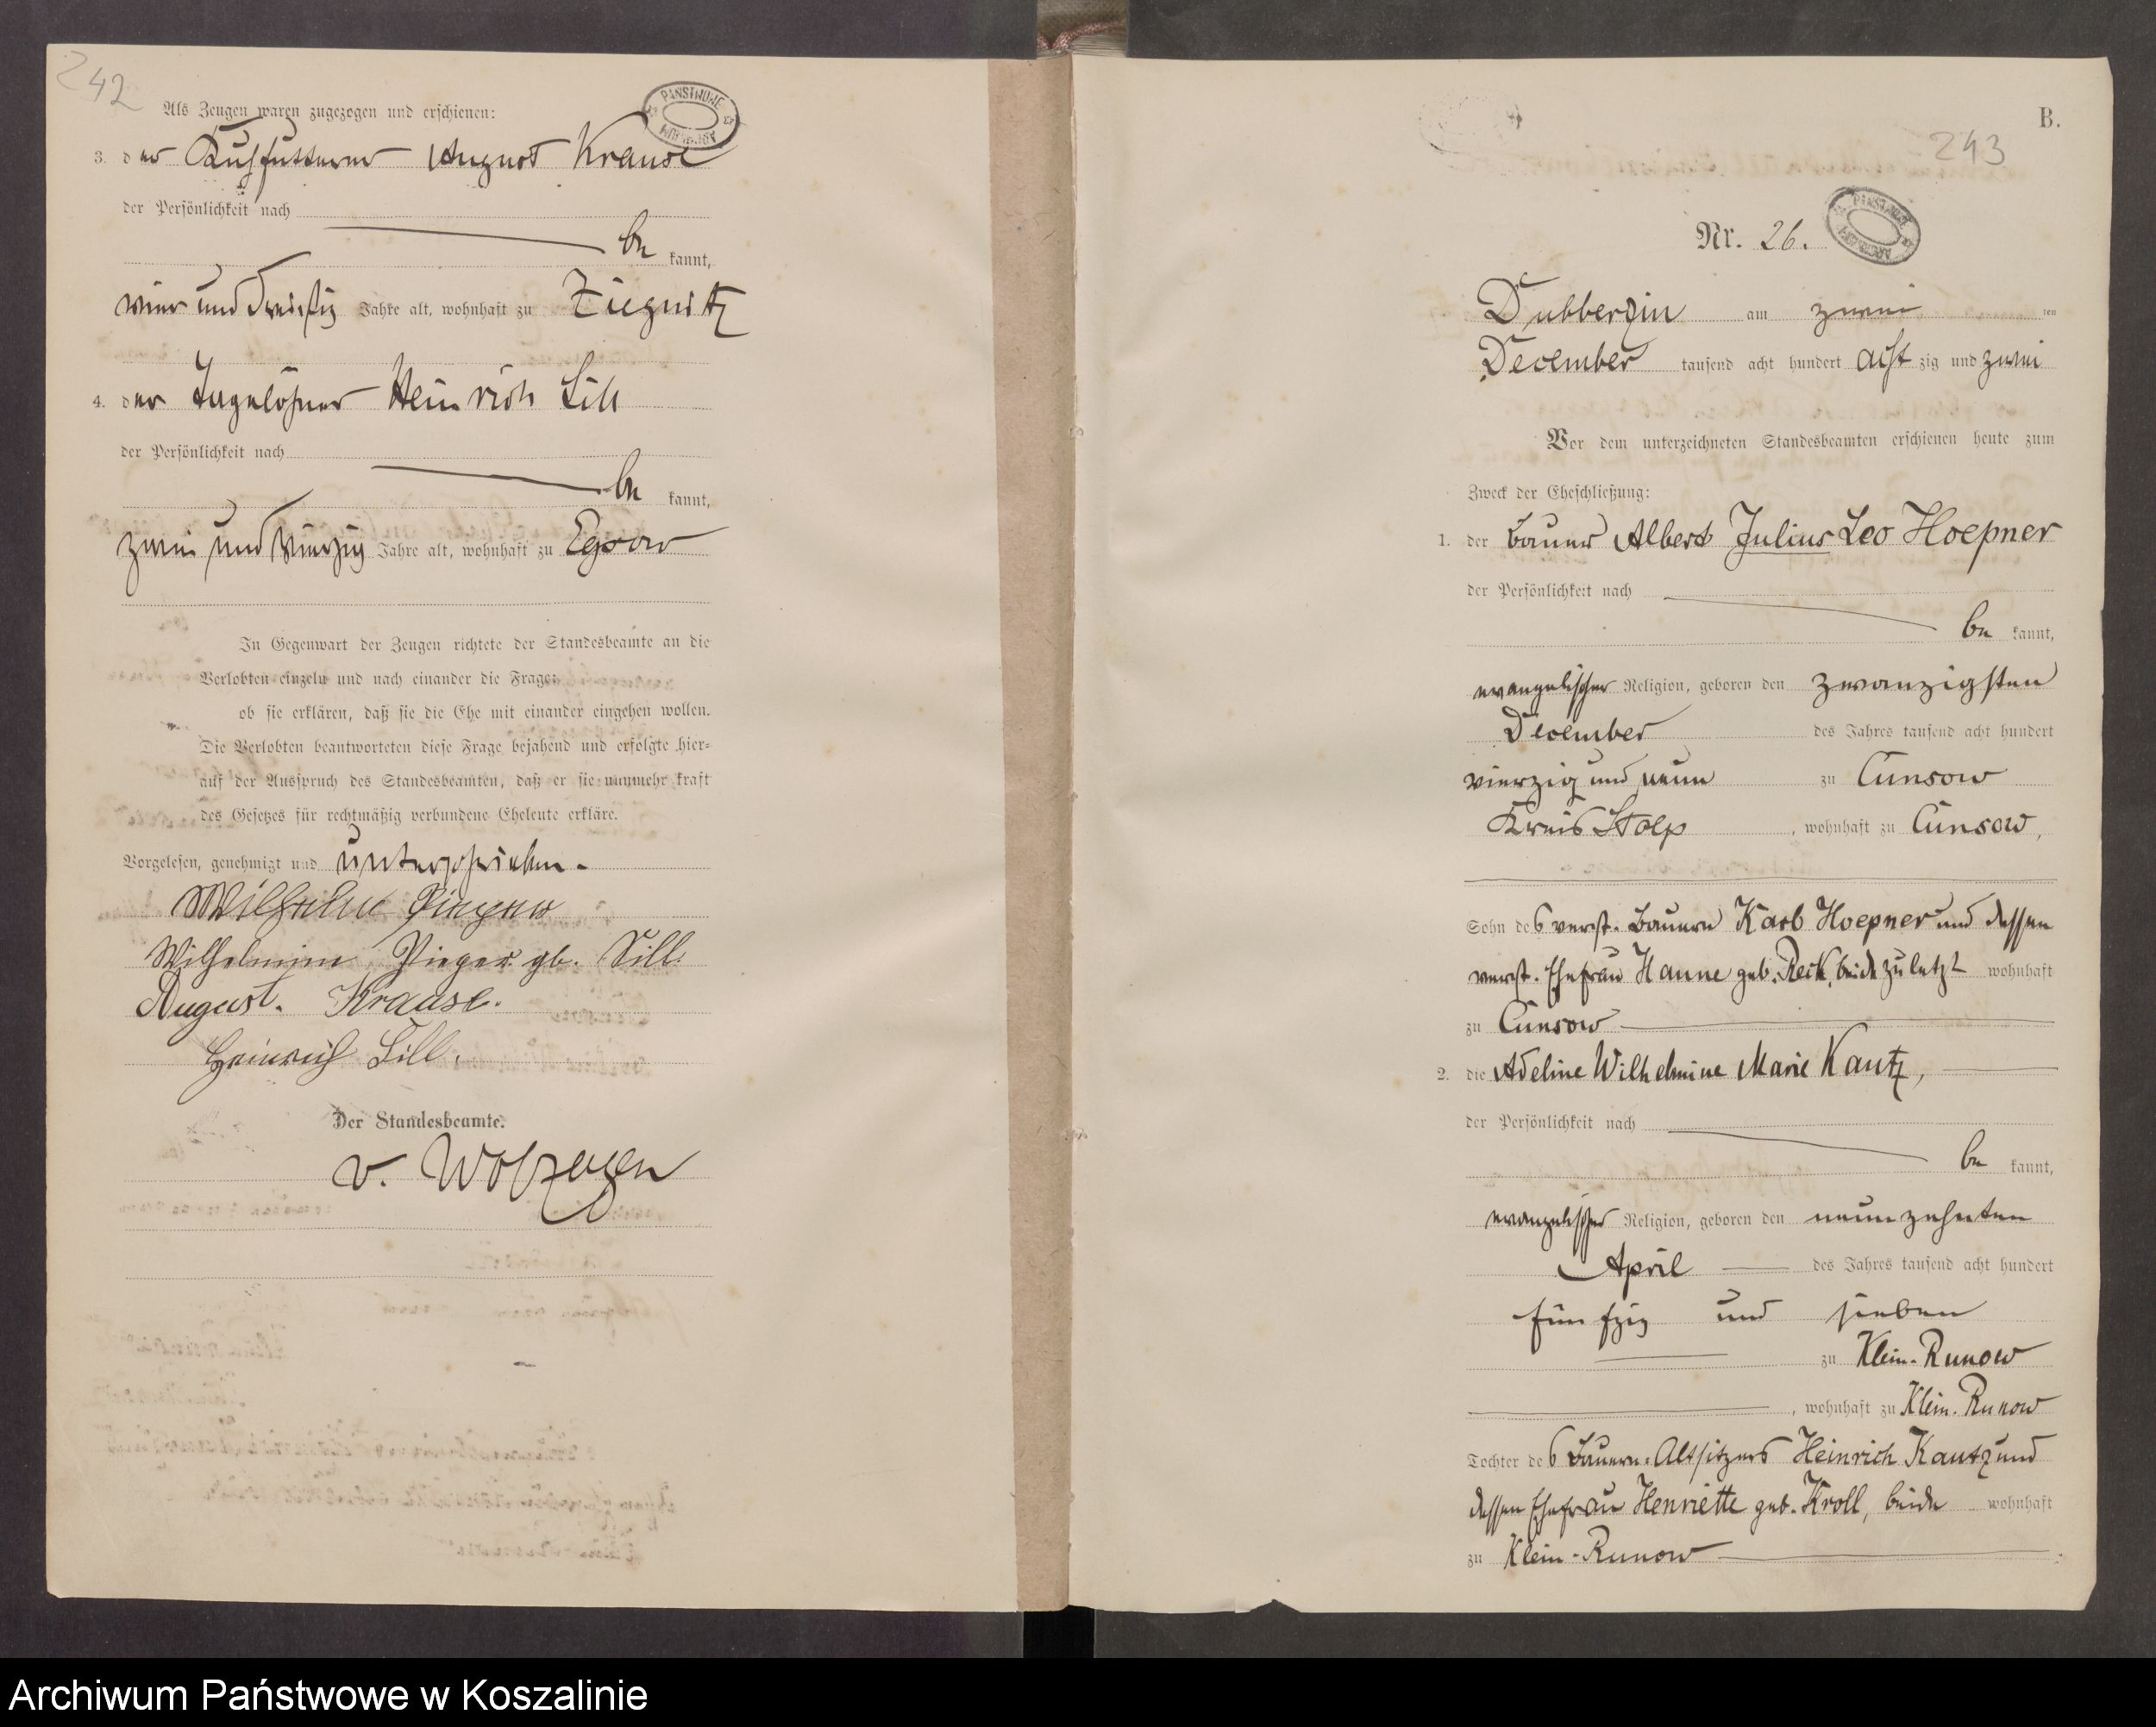 242
Als Zeugen waren zugezogen und erschienen:
PANSTWOWE ARCHIWUM
3. der Kuhfutterer August Krause
der Persönlichkeit nach
be kannt,
vier und dreißig Jahre alt, wohnhaft zu Ziegnitz
4. der Tagelöhner Heinrich Sill
der Persönlichkeit nach
be kannt,
zwei und vierzig Jahre alt, wohnhaft zu Egsow
In Gegenwart der Zeugen richtete der Standesbeamte an die
Verlobten einzeln und nach einander die Frage:
ob sie erklären, daß sie die Ehe mit einander eingehen wollen.
Die Verlobten beantworteten diese Frage bejahend und erfolgte hier-
auf der Ausspruch des Standesbeamten, daß er sie nunmehr kraft
des Gesetzes für rechtmäßig verbundene Eheleute erkläre.
Vorgelesen, genehmigt und unterschrieben.
Wilhelm Pieper
Wilhelmine Pieper gb. Sill.
August. Krause.
Heinrich Sill.
Der Standesbeamte.
v. Wolzogen
B.
243
Nr. 26.
PANSTWOWE ARCHIWUM
Dubberzin am zwei ten
December tausend acht hundert acht zig und zwei
Vor dem unterzeichneten Standesbeamten erschienen heute zum
Zweck der Eheschließung:
1. der Bauer Albert Julius Leo Hoepner
der Persönlichkeit nach
be kannt,
evangelischer Religion, geboren den zwanzigsten
December des Jahres tausend acht hundert
vierzig und neun zu Cunsow
Kreis Stolp, wohnhaft zu Cunsow,
Sohn des verst. Bauern Karl Hoepner und dessen
verst. Ehefrau Hanne geb. Reck, beide zuletzt wohnhaft
zu Cunsow
2. die Adeline Wilhelmine Marie Kautz,
der Persönlichkeit nach
be kannt,
evangelischer Religion, geboren den neunzehnten
April des Jahres tausend acht hundert
fünfzig und sieben
zu Klein-Runow
, wohnhaft zu Klein-Runow
Tochter des Bauern-Altsitzers Heinrich Kautz und
dessen Ehefrau Henriette geb. Kroll, beide wohnhaft
zu Klein-Runow
Archiwum Państwowe w Koszalinie